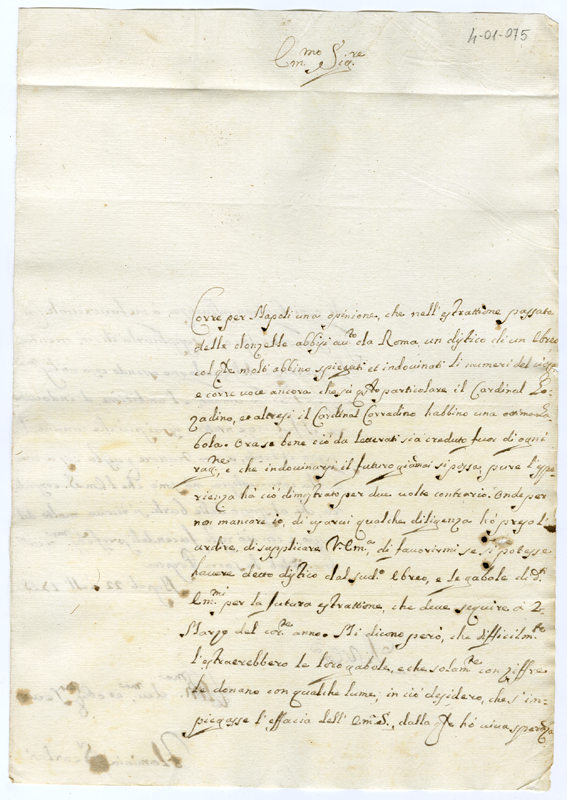 4-01-075
Em.mo Sig.re
Corre per Napoli una opinione, che nell'estrattione passata
delle donzelle abbisi auto da Roma un distico di un Ebreo
col qle molti abbino spiegati et indovinati li numeri del
e corre voce ancora che sù qto particolare il Cardinal
zadino, et altresi il Cordinal Corradino habbino una
bola. Ora se bene ciò da letterati sia creduto fuor di ogni
rag.ne, e che indovinarsi il futuro giamai si possa, pure l'spe-
rienza hà ciò dimostrato per due volte contrario. Onde per
non mancare io, di usarci qualche diligenza hò preso l'
ardire, di supplicare V. Em.a, di favorirmi se si potesse
havere detto distico dal sud.o Ebreo, e le gabole di d.i
Em.mi per la futura estrattione, che deve seguire à 2
Marzo del cor.te anno. Mi dicono però, che difficilm.te
l'estraerebbero le loro gabole, e che solam.te con ziffre
le donano con qualche lume; in ciò desidero, che s'im-
piegasse l'efficacia dell' Em.a S., dalla qle hò viva speranza